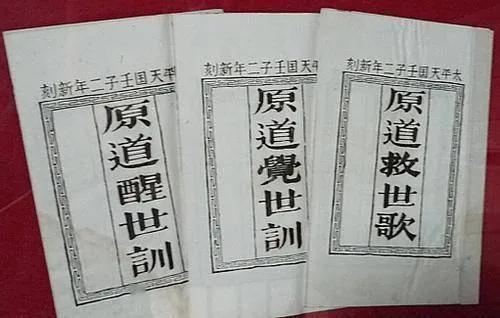 平天国壬子二年新刻
原道醒世訓
平天国壬子二年新刻
原道覺世訓
太平天国壬子二年新刻
原道救世歌